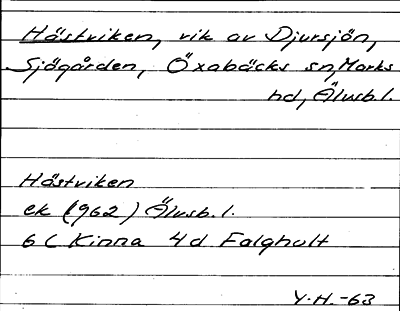 Hästviken, vik av Djursjön,
Sjögården, Öxabäcks sn, Marks
hd, Älvsb.l.
Hästviken
ek (1962) Älvsb. l.
6 C Kinna 4 d Falghult
Y.H.-63